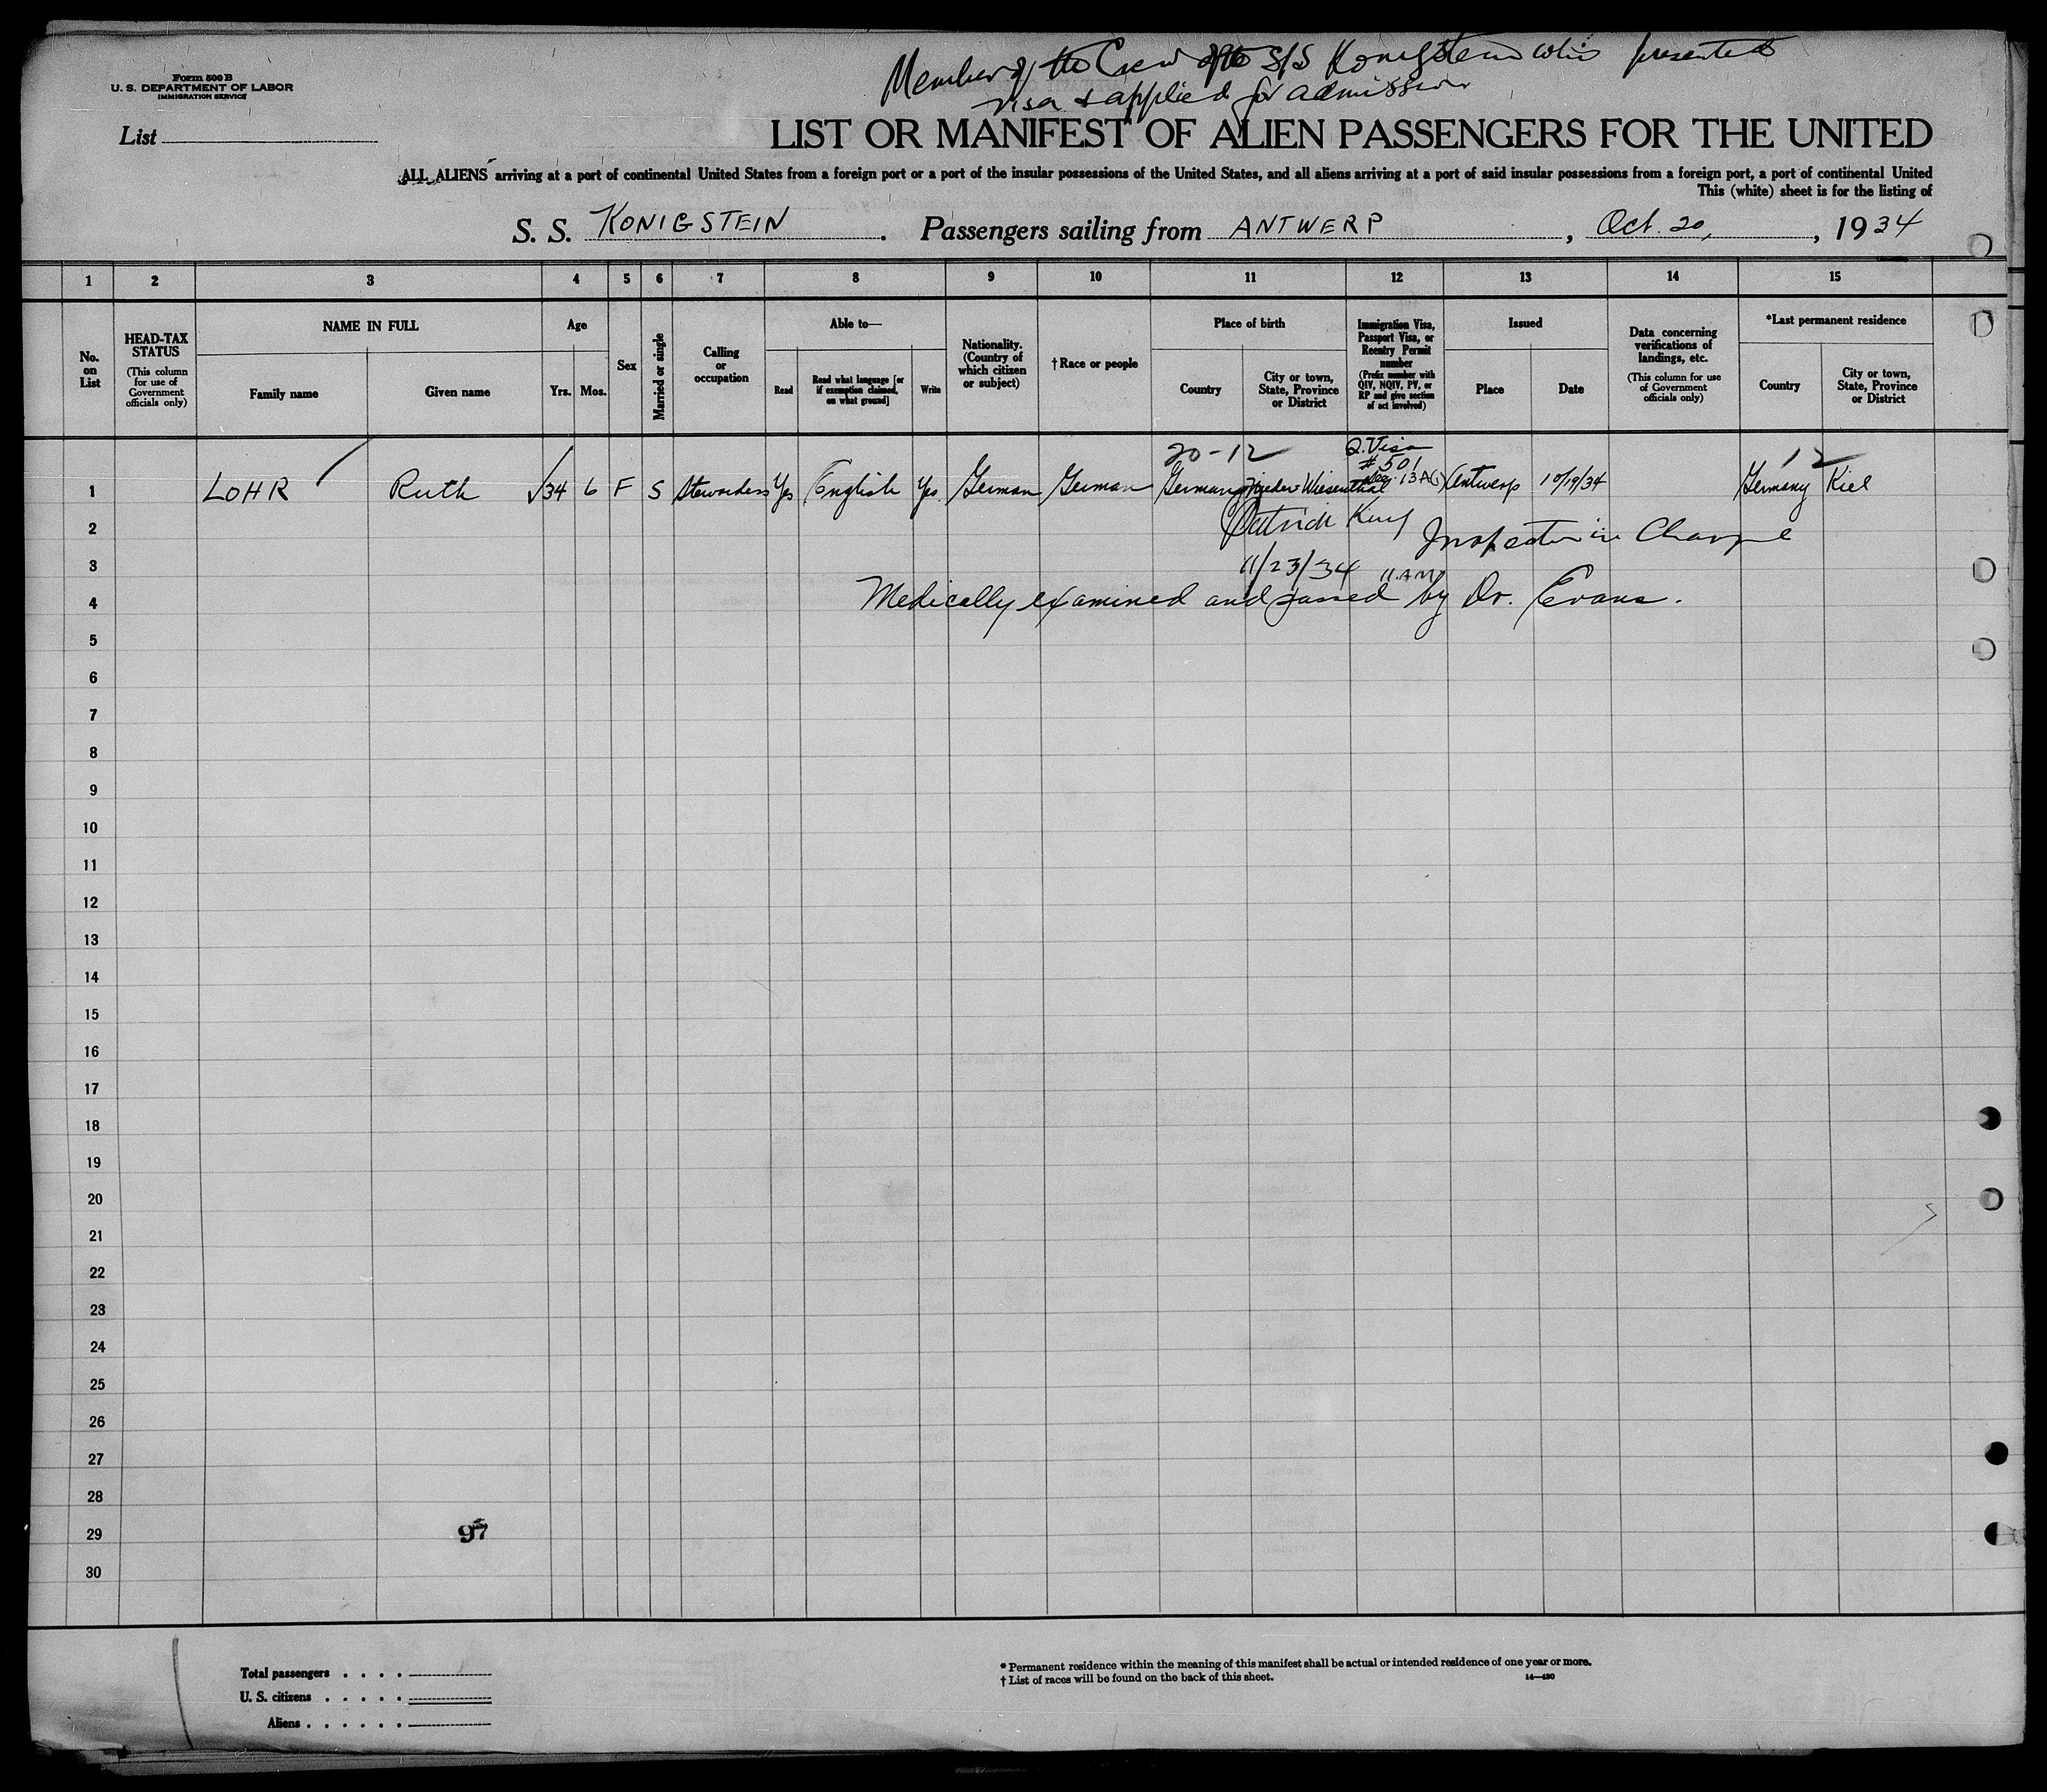 Member of the Crew of the S/S Konigstein who presented
visa & applied for admission
Form 500 B
U. S. DEPARTMENT OF LABOR
IMMIGRATION SERVICE
List
LIST OR MANIFEST OF ALIEN PASSENGERS FOR THE UNITED
ALL ALIENS arriving at a port of continental United States from a foreign port or a port of the insular possessions of the United States, and all aliens arriving at a port of said insular possessions from a foreign port, a port of continental United
This (white) sheet is for the listing of
S. S. KONIGSTEIN. Passengers sailing from ANTWERP, Oct. 20, , 1934
1 2 3 4 5 6 7 8 9 10 11 12 13 14 15
No. on List
HEAD-TAX STATUS
(This column for use of Government officials only)
NAME IN FULL
Family name
Given name
Age
Yrs. Mos.
Sex
Married or single
Calling or occupation
Able to—
Read
Read what language [or if exemption claimed, on what ground]
Write
Nationality. (Country of which citizen or subject)
†Race or people
Place of birth
Country
City or town, State, Province or District
Immigration Visa, Passport Visa, or Reentry Permit number
(Prefix number with QIV, NQIV, PV, or RP and give section of act involved)
Issued
Place
Date
Data concerning verifications of landings, etc.
(This column for use of Government officials only)
*Last permanent residence
Country
City or town, State, Province or District
20-12 Q. Visa #501 12
1 LOHR Ruth √34 6 F S Stewardess Yes English Yes German German Germany Nieder Wiesenthal 13A(1) Antwerp 10/19/34 Germany Kiel
2 Patrick Inspector in Charge
3 11/23/34 11 AM
4 Medically examined and passed by Dr. Evans.
5
6
7
8
9
10
11
12
13
14
15
16
17
18
19
20
21
22
23
24
25
26
27
28
29 97
30
Total passengers . . . .
U. S. citizens . . . . .
Aliens . . . . . .
* Permanent residence within the meaning of this manifest shall be actual or intended residence of one year or more.
† List of races will be found on the back of this sheet. 14—430